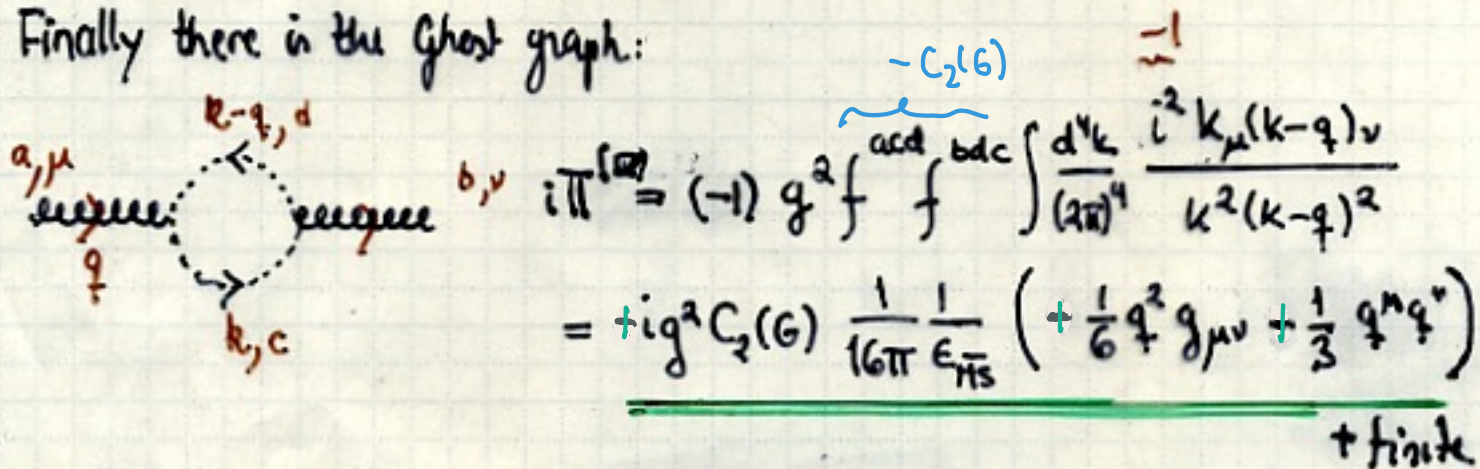 Finally there is the Ghost graph:
-C₂(G)
-1
k-q, d
a, μ
b, ν
q
k, c
iπ = (-1) g² f^{acd} f^{bdc} ∫ d⁴k/(2π)⁴ i² k_μ (k-q)_ν / k² (k-q)²
= + i g² C₂(G) 1/16π 1/ε_{M̄S̄} ( + 1/6 q² g_{μν} + 1/3 q^μ q^ν )
+ finite